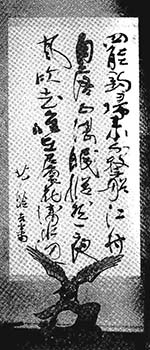 罷釣歸来不繫船江村
月落正堪眠縱然一夜
風吹去唯在蘆花淺水邊
書